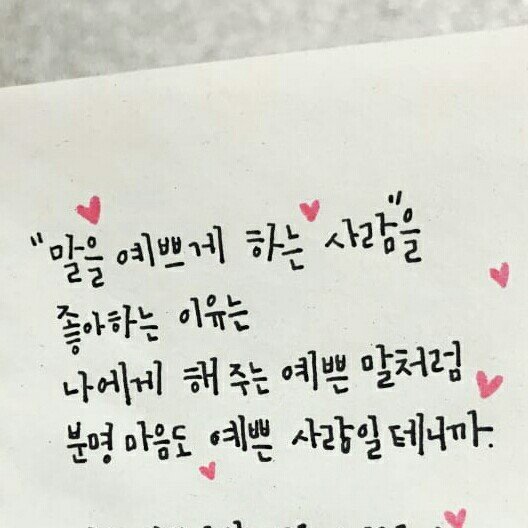 "말을 예쁘게 하는 사람"을
좋아하는 이유는
나에게 해 주는 예쁜 말처럼
분명 마음도 예쁜 사람일 테니까.